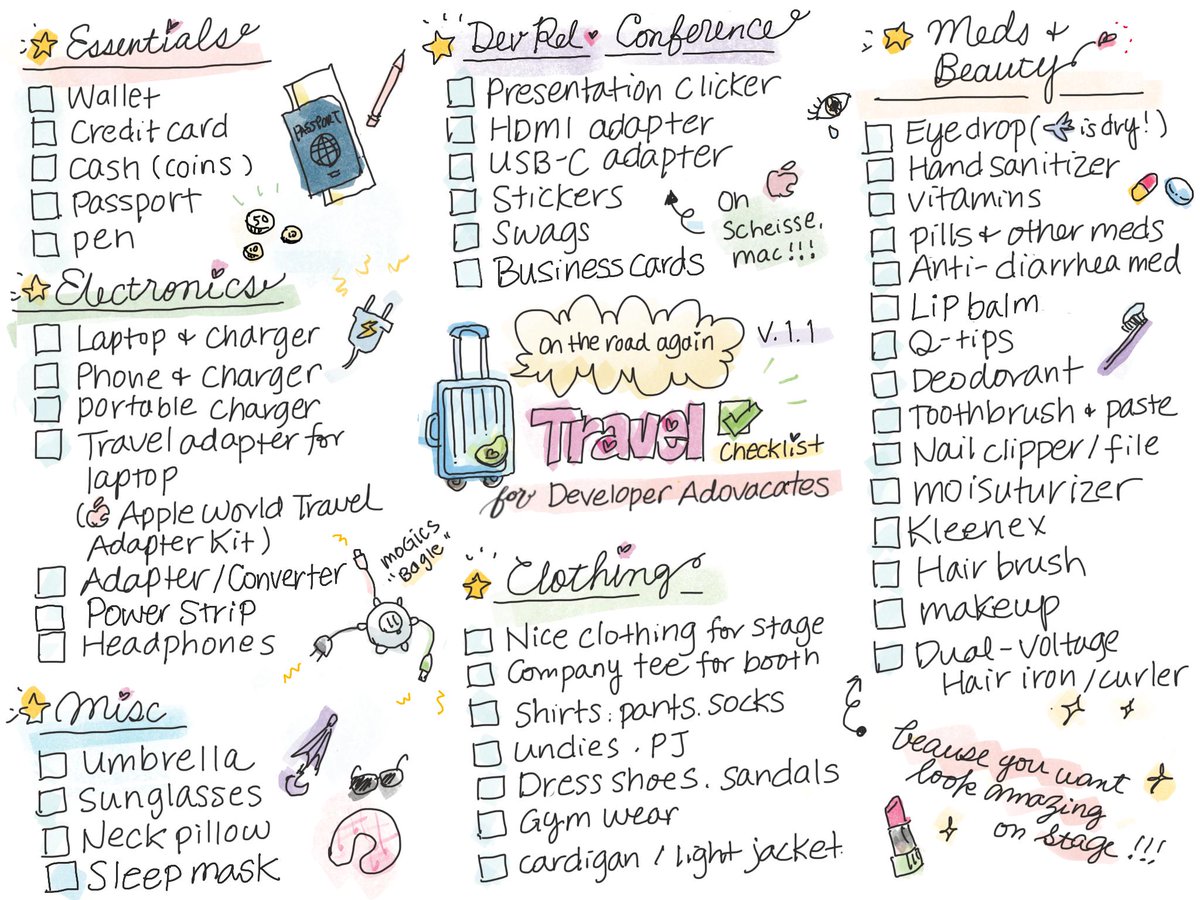 Essentials
Wallet
Credit card
Cash (coins)
Passport
pen
PASSPORT
50
10
10
Electronics
Laptop & Charger
Phone & Charger
portable charger
Travel adapter for
laptop
( Apple World Travel
Adapter Kit)
Adapter/Converter
Power strip
Headphones
moGics
"Bagle"
Misc
umbrella
sunglasses
Neck pillow
Sleep mask
DevRel Conference
Presentation clicker
HDMI adapter
USB-C adapter
Stickers
Swags
Business cards
On
Scheisse.
mac!!!
on the road again
v.1.1
Travel
checklist
for Developer Adovacates
Clothing
Nice clothing for stage
Company tee for booth
Shirts. pants. socks
undies. PJ
Dress shoes. sandals
Gym wear
cardigan / light jacket
Meds &
Beauty
Eye drop ( is dry!)
Hand sanitizer
vitamins
pills & other meds
Anti-diarrhea med
Lip balm
Q-tips
Deodorant
Toothbrush & paste
Nail clipper/file
moisuturizer
Kleenex
Hair brush
makeup
Dual-voltage
Hair iron/curler
beause you want
look amazing
on stage!!!